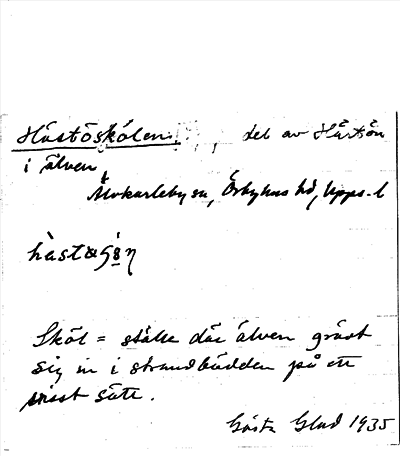 Hästöskölen, del av Hästön
i älven
Älvkarleby sn, Örbyhus hd, Upps. l
Sköl = ställe där älven grävt
sig in i strandbädden på ett
visst sätt.
Gösta Glad 1935